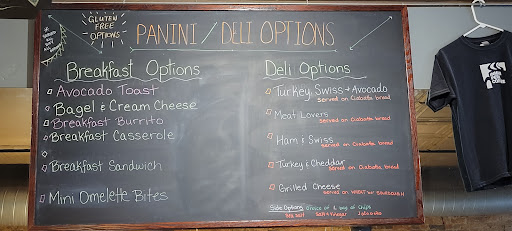 GLUTEN
FREE
OPTIONS
PANINI / DELI OPTIONS
Breakfast Options
Avocado Toast
Bagel & Cream Cheese
Breakfast Burrito
Breakfast Casserole
Breakfast Sandwich
Mini Omelette Bites
Deli Options
Turkey, Swiss + Avocado
served on Ciabatta bread
Meat Lovers
served on Ciabatta bread
Ham & Swiss
served on Ciabatta bread
Turkey & Cheddar
served on Ciabatta bread
Grilled Cheese
served on WHEAT or SOURDOUGH
Side Options Choice of 1 bag of Chips
Sea Salt Salt & Vinegar Jalapeño